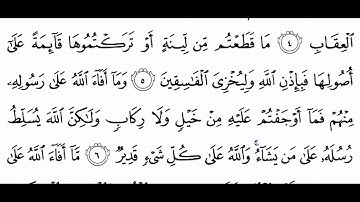 ٱلْعِقَابِ ٤ مَا قَطَعْتُم مِّن لِّينَةٍ أَوْ تَرَكْتُمُوهَا قَآئِمَةً عَلَىٰٓ
أُصُولِهَا فَبِإِذْنِ ٱللَّهِ وَلِيُخْزِىَ ٱلْفَٰسِقِينَ ٥ وَمَآ أَفَآءَ ٱللَّهُ عَلَىٰ رَسُولِهِۦ
مِنْهُمْ فَمَآ أَوْجَفْتُمْ عَلَيْهِ مِنْ خَيْلٍ وَلَا رِكَابٍ وَلَٰكِنَّ ٱللَّهَ يُسَلِّطُ
رُسُلَهُۥ عَلَىٰ مَن يَشَآءُ ۚ وَٱللَّهُ عَلَىٰ كُلِّ شَىْءٍ قَدِيرٌ ٦ مَّآ أَفَآءَ ٱللَّهُ عَلَىٰ